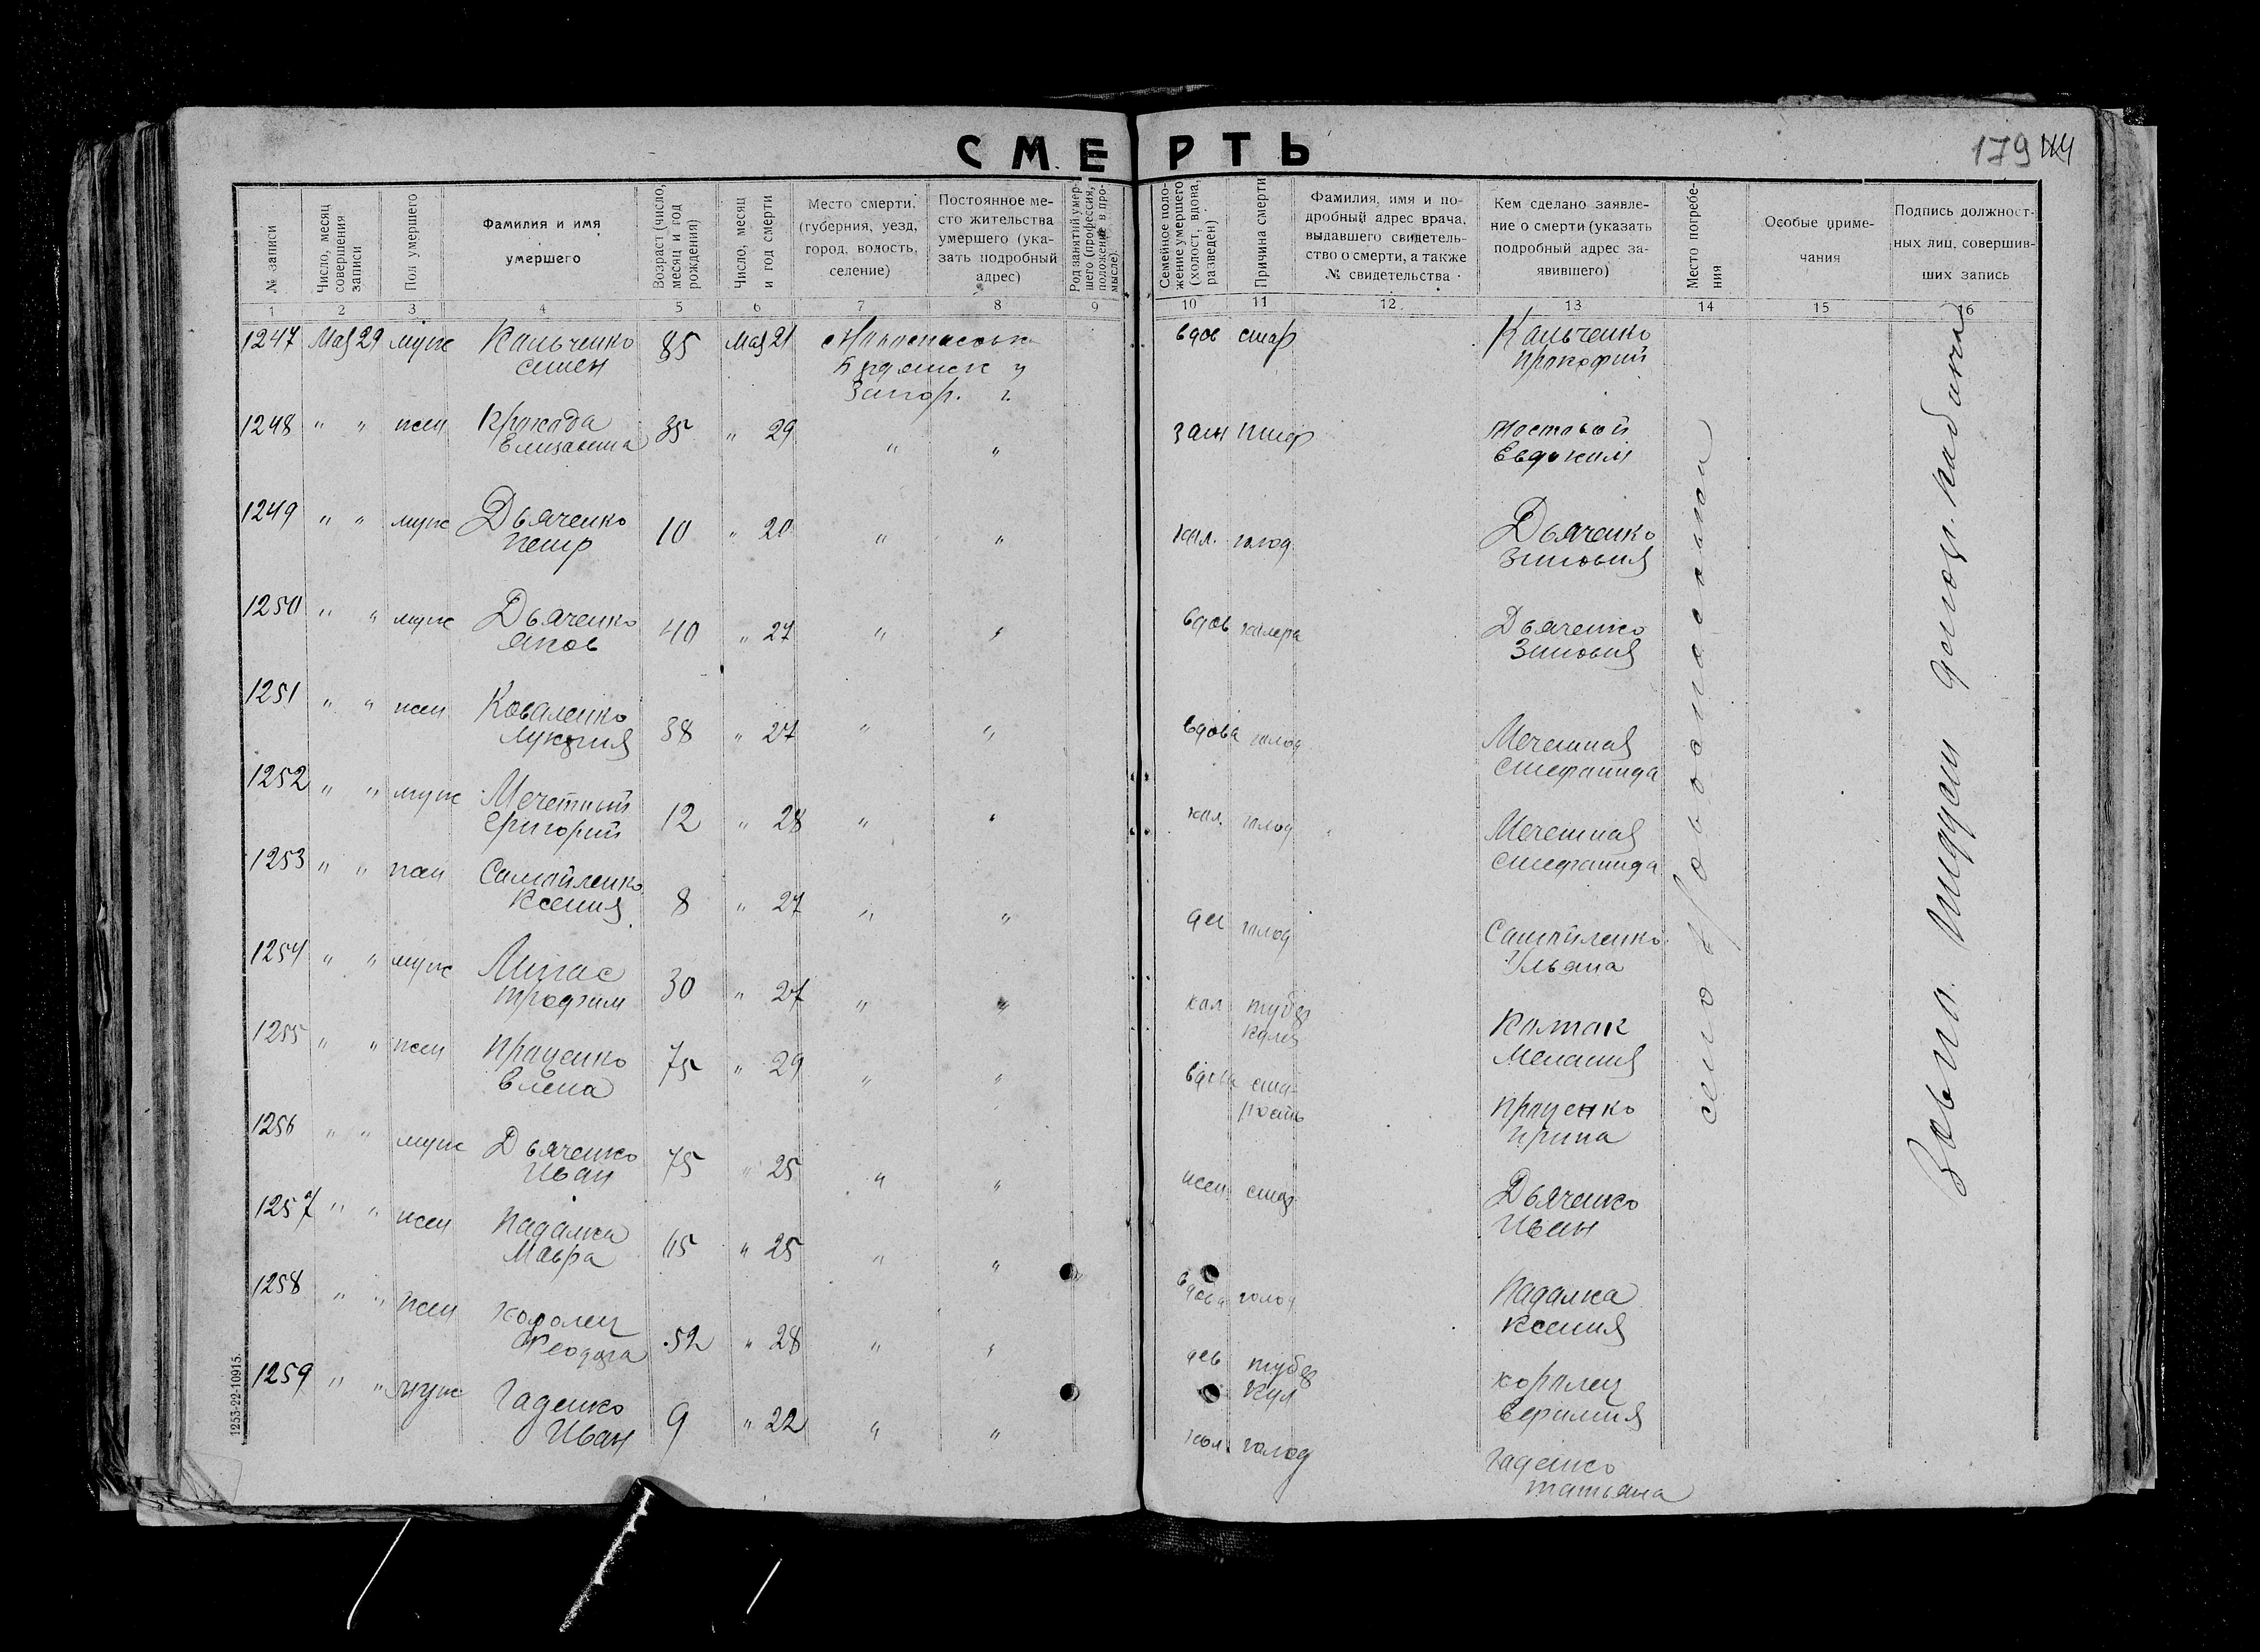 СМЕРТЬ
179
№ записи
Число, месяц совершения записи
Пол умершего
Фамилия и имя умершего
Возраст (число, месяц и год рождения)
Число, месяц и год смерти
Место смерти, (губерния, уезд, город, волость, селение)
Постоянное место жительства умершего (указать подробный адрес)
Род занятий умершего (профессия, положение в промысле).
Семейное положение умершего (холост, вдова, разведен)
Причина смерти
Фамилия, имя и подробный адрес врача, выдавшего свидетельство о смерти, а также № свидетельства
Кем сделано заявление о смерти (указать подробный адрес заявившего)
Место погребения
Особые примечания
Подпись должностных лиц, совершивших запись
1 2 3 4 5 6 7 8 9 10 11 12 13 14 15 16
1247 Мая 29 муж Кальченко 85 Мая 21 вдов стар Кальченко
Семен Прокофий
Запор. г.
1248 " " жен Елизавета 35 " 29 " " Мостовой
Евдоким
1249 " " муж Дьяченко 10 " 20 " " хол. голод Дьяченко
Петр Зиновия
1250 " " муж Дьяченко 40 " 27 " " вдов холера Дьяченко
Яков Зиновия
1251 " " жен Коваленко 38 " 27 " " вдова голод Мечетная
Лукерия Стефанида
1252 " " муж Мечетный 12 " 28 " " хол. голод Мечетная
Григорий Стефанида
1253 " " жен Самойленко 8 " 27 " " голод Самойленко
Ксения Ульяна
1254 " " муж 30 " 27 " " хол тубер Колтак
Трофим кулез Мелания
1255 " " жен Проценко 75 " 29 " " вдова ста- Проценко
Елена рость Ирина
1256 " " муж Дьяченко 75 " 25 " " жен стар Дьяченко
Иван Иван
1257 " " жен Падалка " 25 " " вдова голод Падалка
Мавра Ксения
1258 " " жен Королец 52 " 28 " " дев тубер Королец
кул
1259 " " муж Гаденко 9 " 22 " " хол. голод Гаденко
Иван Татьяна
село Новоспасское
1253-22-10915.